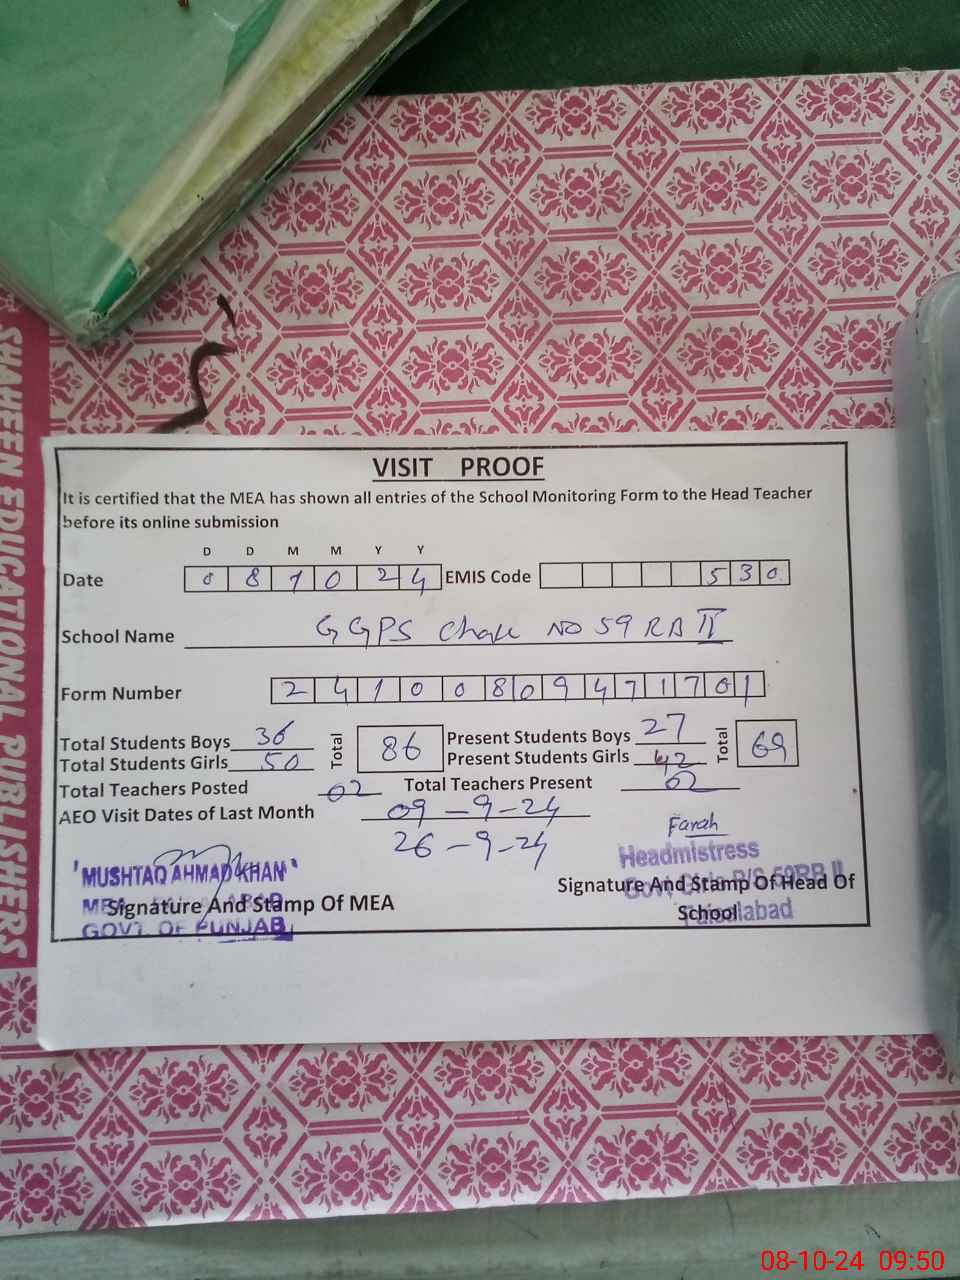 SHAHEEN EDUCATIONAL PUBLISHERS
VISIT PROOF
It is certified that the MEA has shown all entries of the School Monitoring Form to the Head Teacher
before its online submission
D D M M Y Y
Date 0 8 1 0 2 4 EMIS Code 5 3 0
School Name GGPS Chak NO 59 RB II
Form Number 2 4 1 0 0 8 0 9 4 7 1 7 0 1
Total Students Boys 36 Total 86 Present Students Boys 27 Total 69
Total Students Girls 50 Present Students Girls 42
Total Teachers Posted 02 Total Teachers Present 02
AEO Visit Dates of Last Month 09-9-24
26-9-24
Farah
Headmistress
'MUSHTAQ AHMAD KHAN'
Govt. Girls P/S 59RB II
Signature And Stamp Of MEA
Signature And Stamp Of Head Of
School
Faisalabad
GOVT. OF PUNJAB
08-10-24 09:50